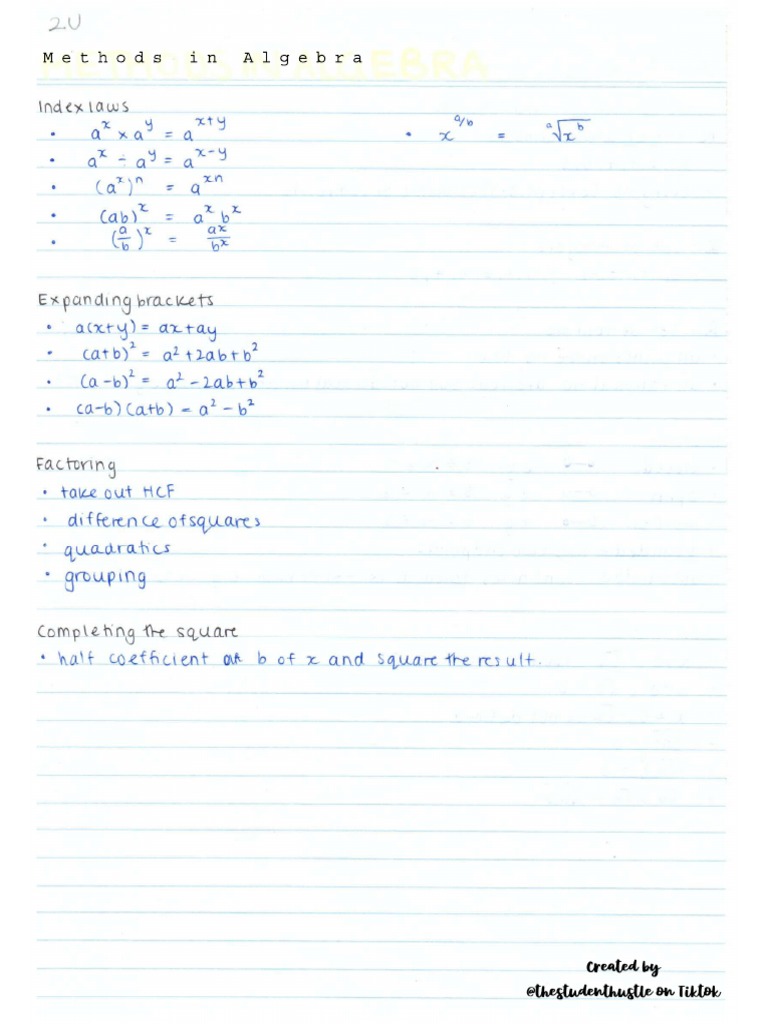 2U
Methods in Algebra
METHODS IN ALGEBRA
Index laws
• a^x × a^y = a^(x+y)
• x^(a/b) = ᵃ√(x^b)
• a^x ÷ a^y = a^(x-y)
• (a^x)^n = a^(xn)
• (ab)^x = a^x b^x
• (a/b)^x = ax/b^x
Expanding brackets
• a(x+y) = ax+ay
• (a+b)² = a²+2ab+b²
• (a-b)² = a²-2ab+b²
• (a-b)(a+b) = a²-b²
Factoring
• take out HCF
• difference of squares
• quadratics
• grouping
Completing the square
• half coefficient b of x and square the result.
Created by
@thestudenthustle on Tiktok